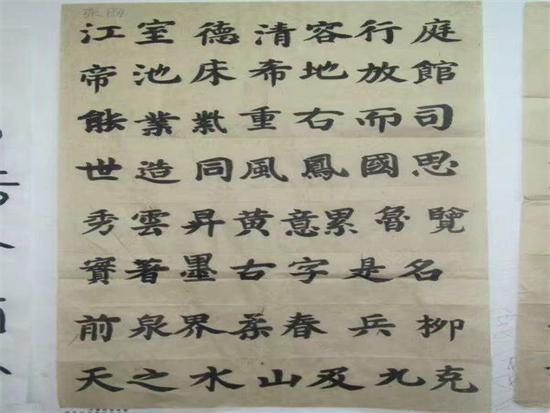 江室德清容行庭
帝池床布地放館
能業重右而司
世造同風鳳國思
秀雲昇黃意累魯覽
著墨古字是名
前泉界春兵柳
天之水山及九克